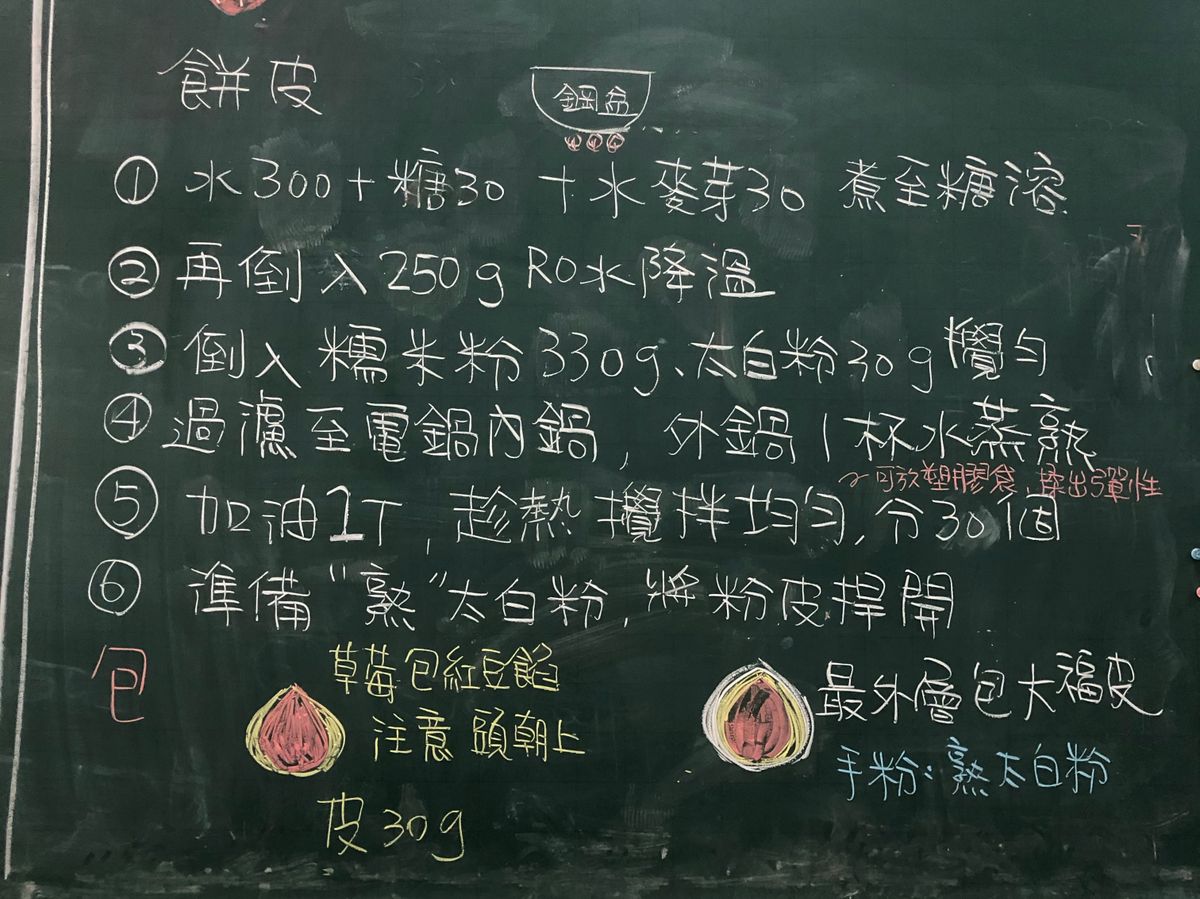 餅皮
鋼盆
① 水300+糖30 +水麥芽30 煮至糖溶
② 再倒入250g RO水降溫
③ 倒入糯米粉330g、太白粉30g攪勻
④ 過濾至電鍋內鍋, 外鍋1杯水蒸熟
~可放塑膠袋、揉出彈性
⑤ 加油1T, 趁熱攪拌均勻, 分30個
⑥ 準備"熟"太白粉, 將粉皮捍開
包
草莓包紅豆餡
注意 頭朝上
皮30g
最外層包大福皮
手粉:熟太白粉